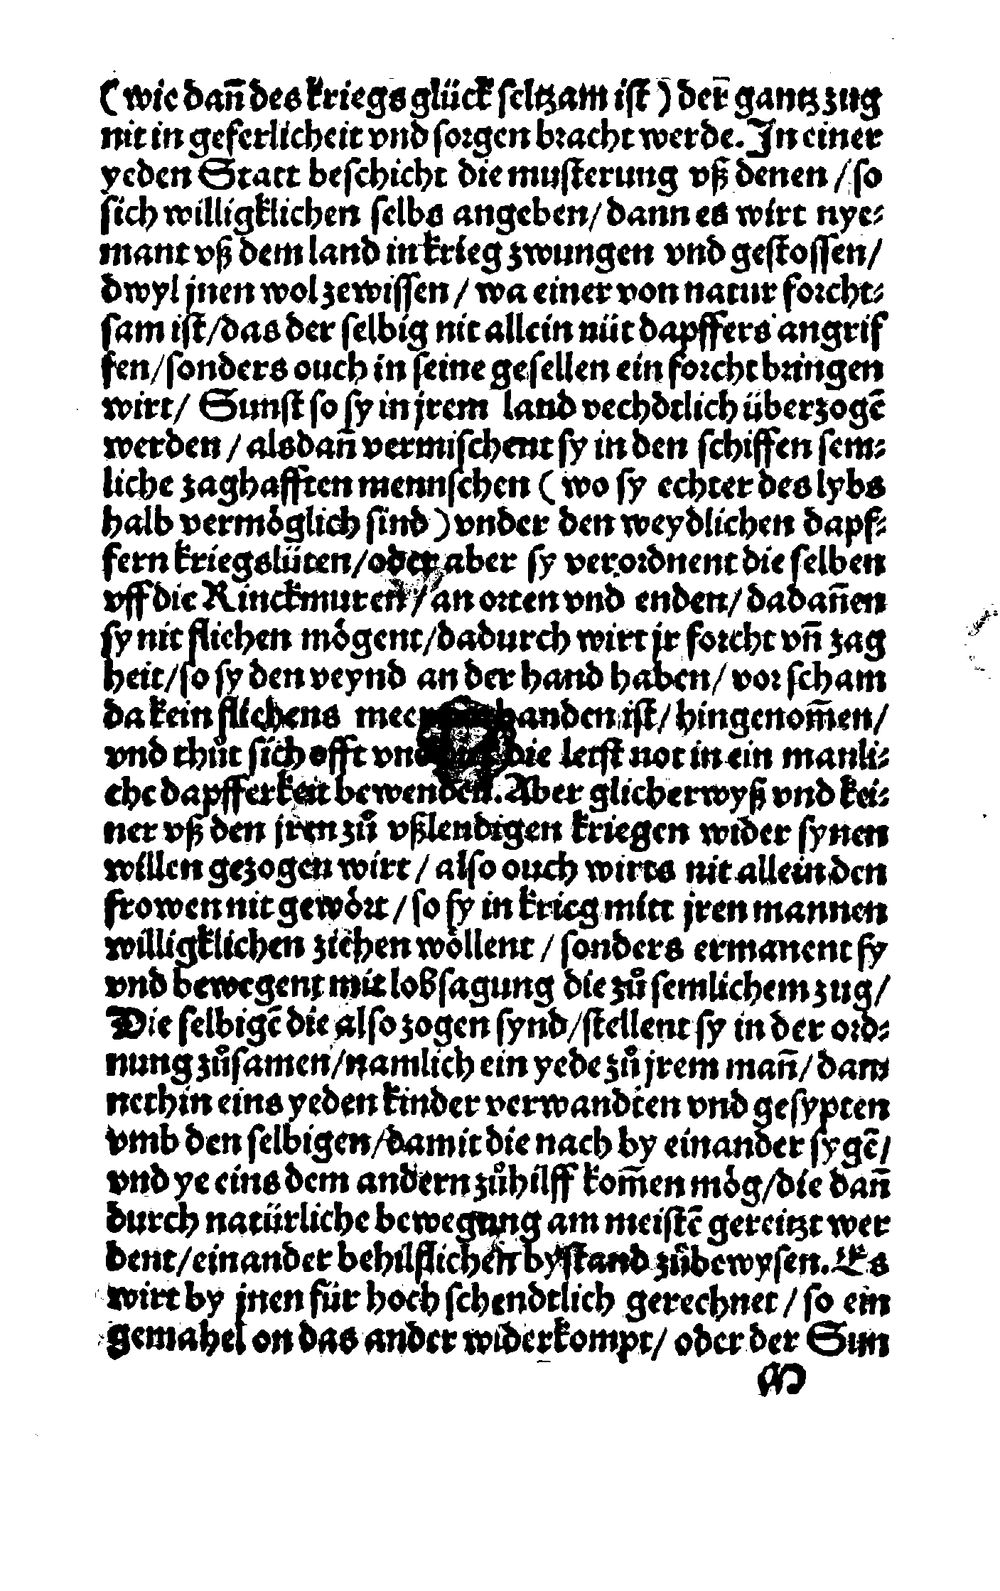 (wie dañ des kriegs glück seltzam ist) der gantz zug
nit in geferlicheit vnd sorgen bracht werde. In einer
yeden Statt beschicht die musterung vß denen / so
sich willigklichen selbs angeben / dann es wirt nye⸗
mant vß dem land in krieg zwungen vnd gestossen /
dwyl jnen wol zewissen / wa einer von natur forcht⸗
sam ist / das der selbig nit allein nüt dapffers angrif
fen / sonders ouch in seine gesellen ein forcht bringen
wirt / Sunst so sy in jrem land vechdtlich überzogē
werden / alsdañ vermischent sy in den schiffen sem⸗
liche zaghafften mennschen (wo sy echter des lybs
halb vermöglich sind) vnder den weydlichen dapf⸗
fern kriegslüten / oder aber sy verordnent die selben
vff die Rinckmuren / an orten vnd enden / dadañen
sy nit fliehen mögent / dadurch wirt jr forcht vñ zag
heit / so sy den veynd an der hand haben / vor scham
da kein fliehens meer handen ist / hingenom̄en /
vnd thůt sich offt vnd die letst not in ein manli⸗
che dapfferkeit bewenden. Aber glicherwyß vnd kei⸗
ner vß den jren zů vßlendigen kriegen wider synen
willen gezogen wirt / also ouch wirts nit allein den
frowen nit gewört / so sy in krieg mitt jren mannen
willigklichen ziehen wöllent / sonders ermanent sy
vnd bewegent mit lobsagung die zů semlichem zug /
Die selbigē die also zogen synd / stellent sy in der ord⸗
nung zůsamen / namlich ein yede zů jrem mañ / dan
nethin eins yeden kinder verwandten vnd gesypten
vmb den selbigen / damit die nach by einander sygē /
vnd ye eins dem andern zůhilff kom̄en mög / die dañ
durch natürliche bewegung am meistē gereitzt wer
dent / einander behilflichen bystand zůbewysen. Es
wirt by jnen für hoch schendtlich gerechnet / so ein
gemahel on das ander widerkompt / oder der Sun
M